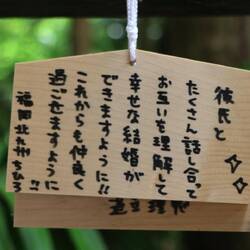 彼氏と
たくさん話し合って
お互いを理解して
幸せな結婚が
できますように!!
これからも仲良く
過ごせますように!!
福岡 北九州 ちひろ